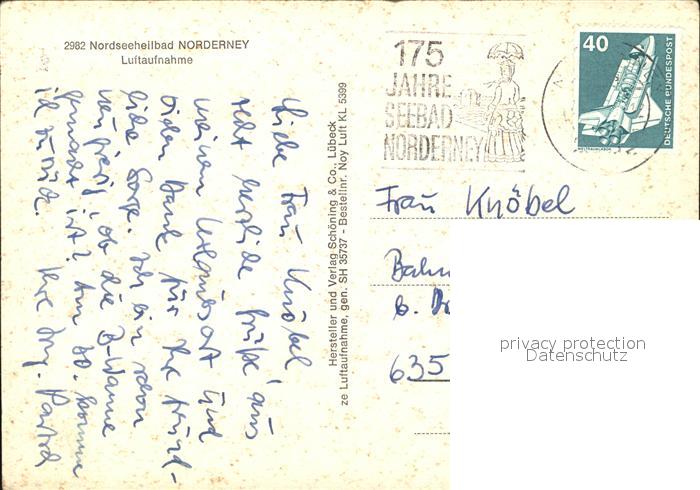 2982 Nordseeheilbad NORDERNEY
Luftaufnahme
175
JAHRE
SEEBAD
NORDERNEY
40
DEUTSCHE BUNDESPOST
WELTRAUMLABOR
Hersteller und Verlag Schöning & Co., Lübeck
ze Luftaufnahme, gen. SH 35737 - Bestellnr. Noy Luft KL 5399
Liebe Frau Knöbel,
recht herzliche Grüße aus
meinem Urlaubsort und
vielen Dank für Ihre freund-
liche Sorge. Ich bin schon
neugierig, ob die B-Wanne
gemacht ist? Am 20. komme
ich zurück. Ihre
Frau Knöbel
Bahn
b.
635
privacy protection
Datenschutz